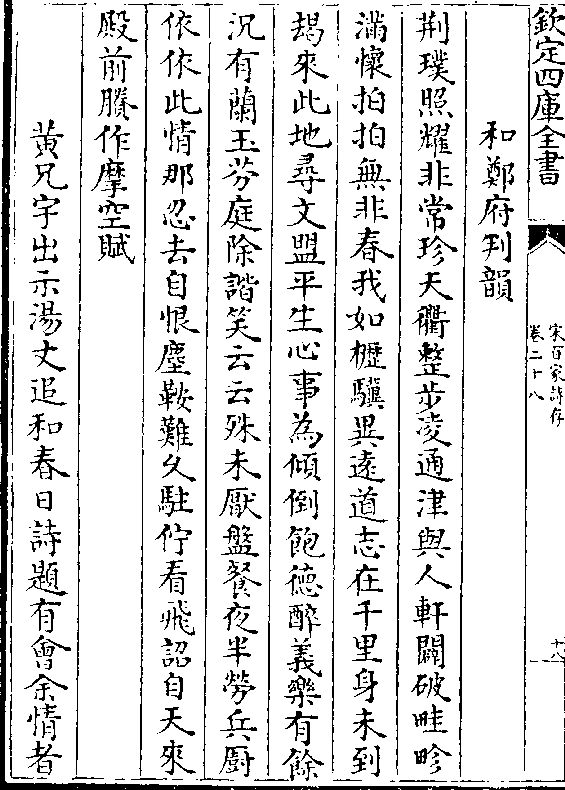 欽定四庫全書
宋百家詩存
卷二十八
十八
和鄭府判韻
荆璞照耀非常珍天衢整步凌通津與人軒闢破畦畛
滿懷拍拍無非春我如櫪驥異遠道志在千里身未到
朅來此地尋文盟平生心事為傾倒飽德醉義樂有餘
況有蘭玉芬庭除諧笑云云殊未厭盤餐夜半勞兵厨
依依此情那忍去自恨塵鞍難久駐佇看飛詔自天來
殿前賸作摩空賦
黄兄宇出示湯丈追和春日詩題有會余情者